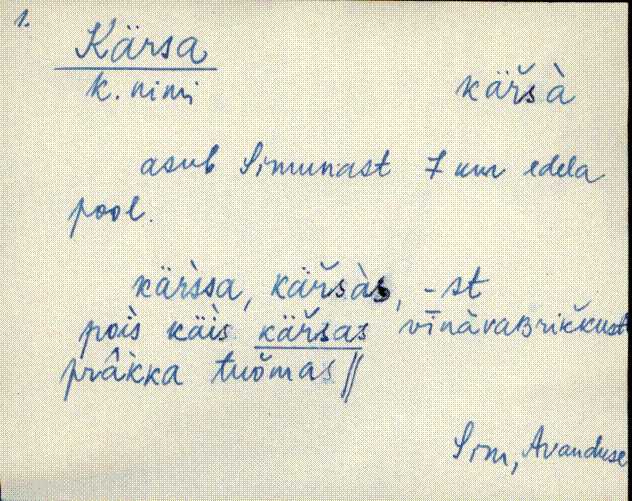 1.
Kärsa
k. nimi kär̆sà
asub Simunast 7 km edela
pool.
kärssa, kär̆sàs, -st
pois̀ käis̀ kär̆sas vīnàvaʙrik̆kust
prâkka tuŏmas ||
Sim, Avanduse